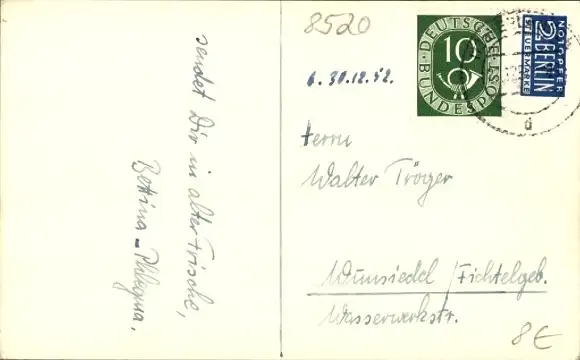 sendet Dir in alter Frische,
Bettina-Phlegma.
8520
6. 30.12.52.
DEUTSCHE
BUNDESPOST
10
NOTOPFER
2 BERLIN
STEUERMARKE
d
Herrn
Walter Tröger
Wunsiedel / Fichtelgeb.
Wasserwerkstr.
8€